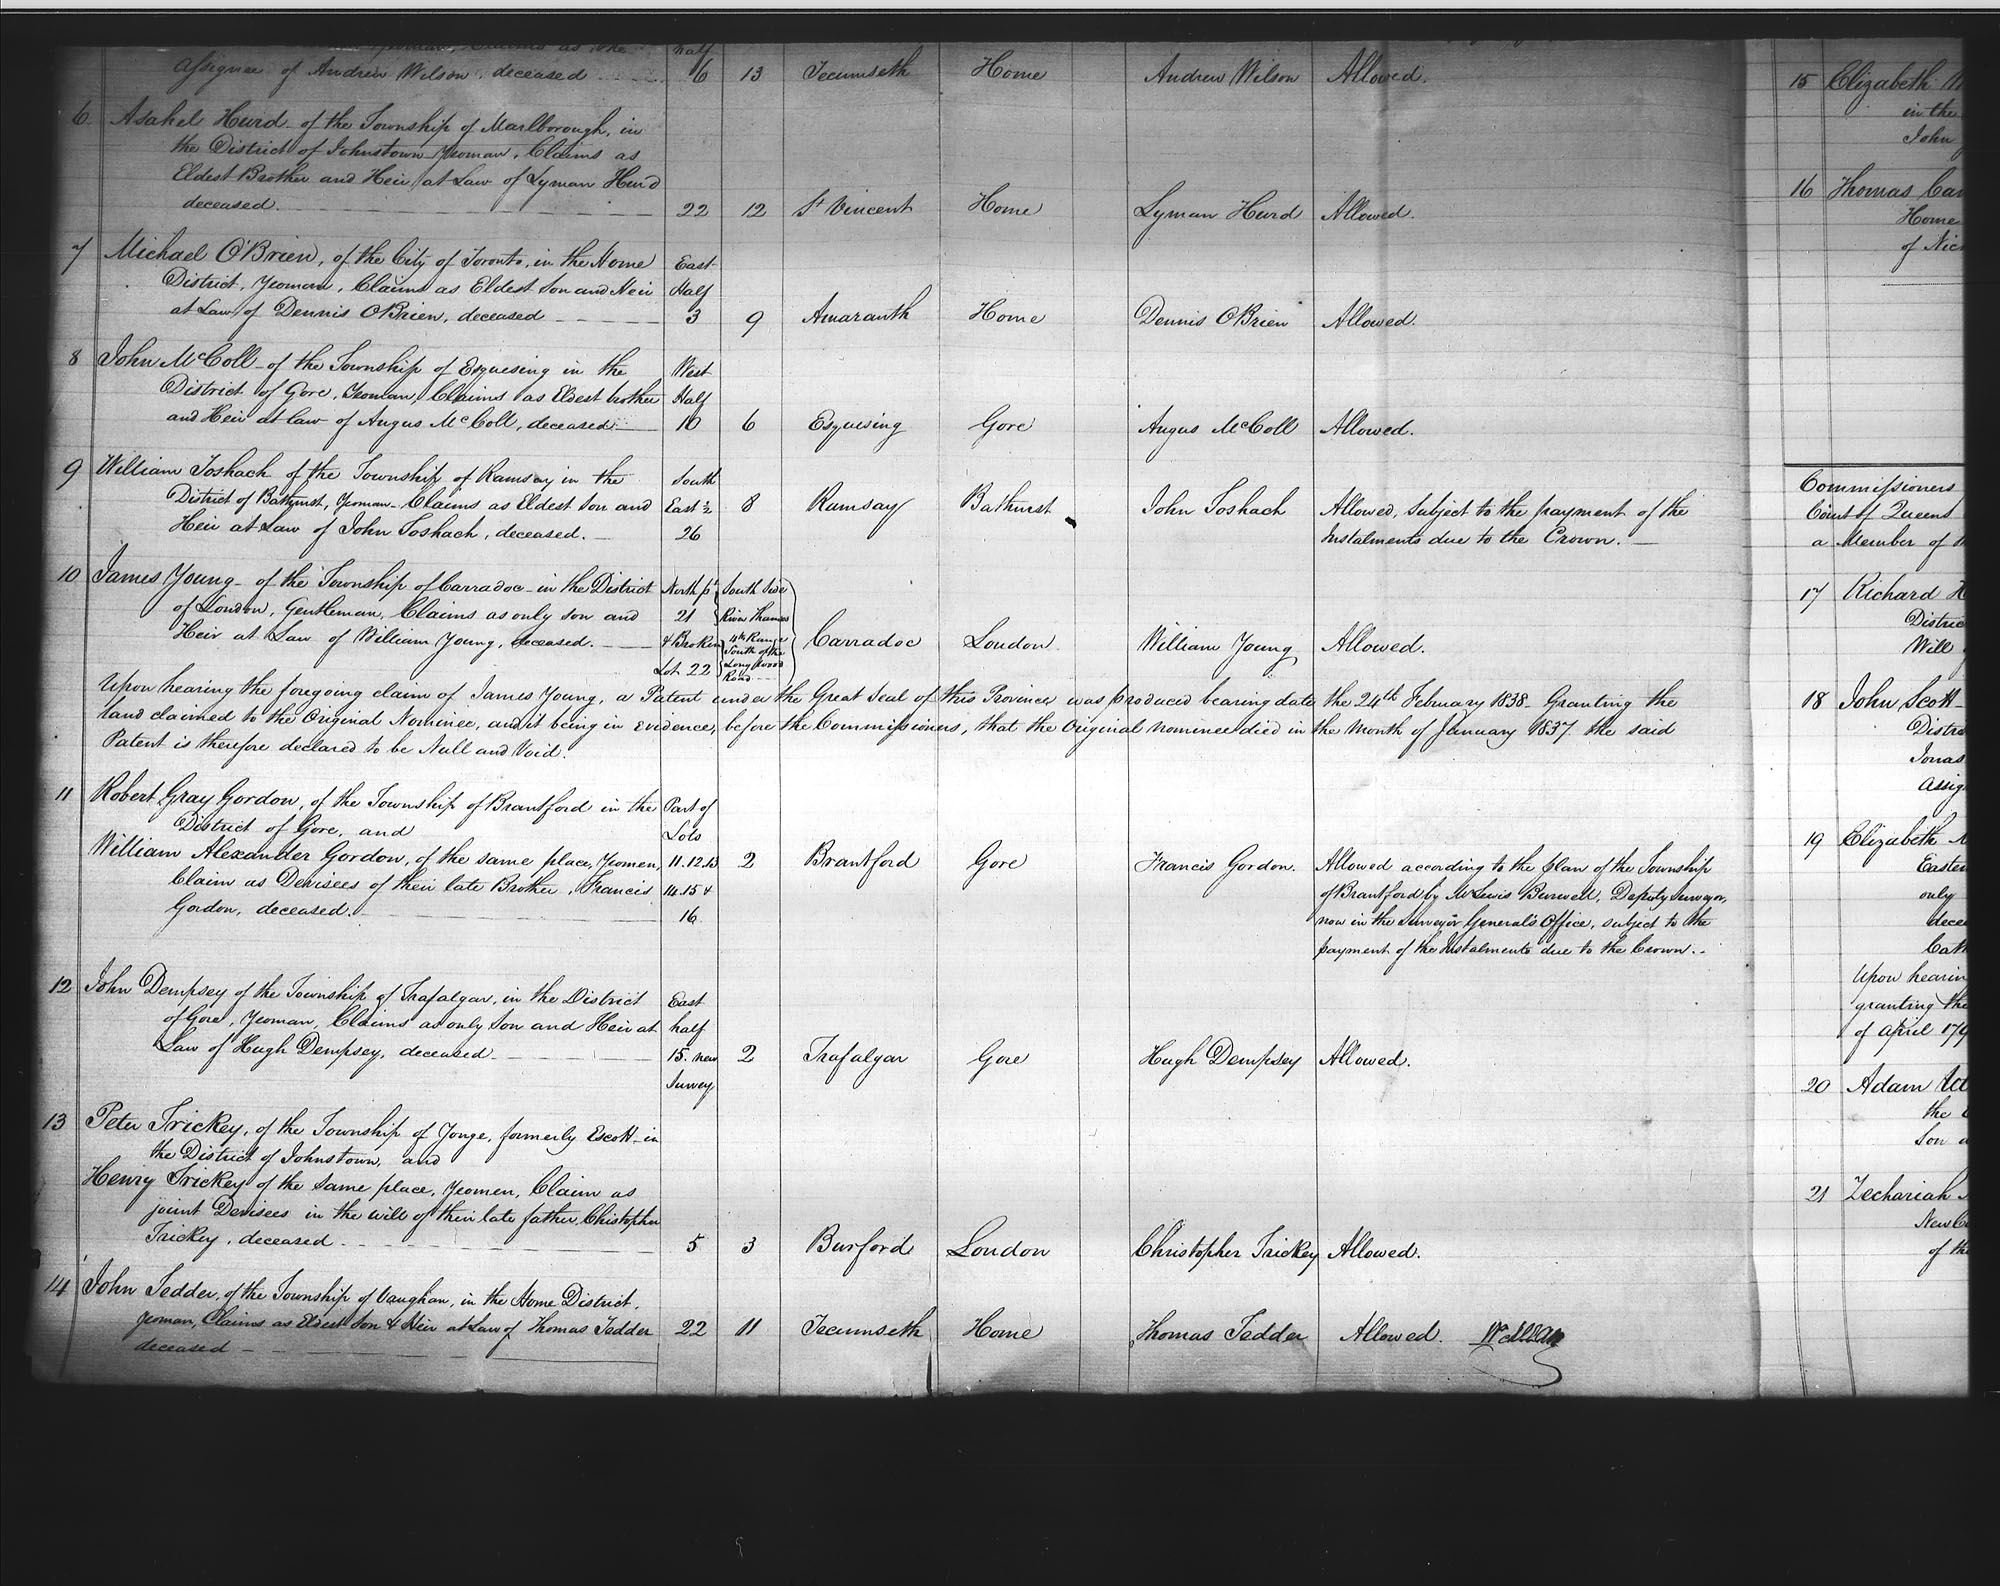 Yeoman, Claims as the half
Assignee of Andrew Wilson, deceased 6 13 Tecumseth Home Andrew Wilson Allowed.
6 Asahel Hurd of the Township of Marlborough, in
the District of Johnstown Yeoman, Claims as
Eldest Brother and Heir at Law of Lyman Hurd
deceased. 22 12 St Vincent Home Lyman Hurd Allowed.
7 Michael O'Brien, of the City of Toronto, in the Home East
District, Yeoman, Claims as Eldest Son and Heir Half
at Law of Dennis O'Brien, deceased 3 9 Amaranth Home Dennis O'Brien Allowed.
8 John McColl of the Township of Esquesing in the West
District of Gore, Yeoman, Claims as Eldest brother Half
and Heir at law of Angus McColl, deceased 10 6 Esquesing Gore Angus McColl Allowed.
9 William Toshach of the Township of Ramsay in the South
District of Bathurst, Yeoman Claims as Eldest Son and East ½ 8 Ramsay Bathurst John Toshach Allowed, subject to the payment of the
Heir at Law of John Toshach, deceased. 26 Instalments due to the Crown.
10 James Young of the Township of Carradoc in the District North pt South Side
of London, Gentleman, Claims as only son and 21 River Thames
Heir at Law of William Young, deceased. & Broken 4th Range Carradoc London William Young Allowed.
South of the
Lot 22 Long Wood
Road
Upon hearing the foregoing claim of James Young, a Patent under the Great Seal of this Province was produced bearing date the 24th February 1838 Granting the
land claimed to the Original Nominee, and it being in Evidence, before the Commissioners, that the Original nominee died in the Month of January 1837 the said
Patent is therefore declared to be Null and Void.
11 Robert Gray Gordon, of the Township of Brantford in the Part of
District of Gore, and Lots
William Alexander Gordon, of the same place, Yeomen, 11.12.13 2 Brantford Gore Francis Gordon. Allowed according to the plan of the Township
Claim as Devisees of their late Brother, Francis 14.15 & of Brantford by Mr Lewis Burwell, Deputy Surveyor,
Gordon, deceased. 16 now in the Surveyor General's Office, subject to the
payment of the Instalments due to the Crown.
12 John Dempsey of the Township of Trafalgar, in the District East
of Gore, Yeoman, Claims as only Son and Heir at half
Law of Hugh Dempsey, deceased 15. new 2 Trafalgar Gore Hugh Dempsey Allowed.
Survey
13 Peter Trickey, of the Township of Yonge, formerly Escott in
the District of Johnstown, and
Henry Trickey of the same place, Yeomen, Claim as
joint Devisees in the will of their late father, Christopher
Trickey, deceased. 5 3 Burford London Christopher Trickey Allowed.
14 John Tedder, of the Township of Vaughan, in the Home District,
Yeoman, Claims as Eldest Son & Heir at Law of Thomas Tedder 22 11 Tecumseth Home Thomas Tedder Allowed.
deceased
15 Elizabeth
in the
John
16 Thomas
Home
of
Commissioners
Court of Queens
a Member of
17 Richard
Distric
Will
18 John Scott
Distri
Jonas
Assig
19 Elizabeth
Easter
only
dece
Cath
Upon hearin
granting the
of April 179
20 Adam
the
Son a
21 Zechariah
New
of the